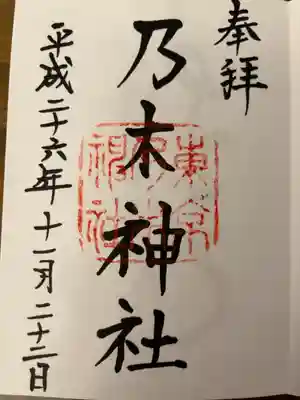 奉拝
乃木神社
平成二十六年十一月二十二日